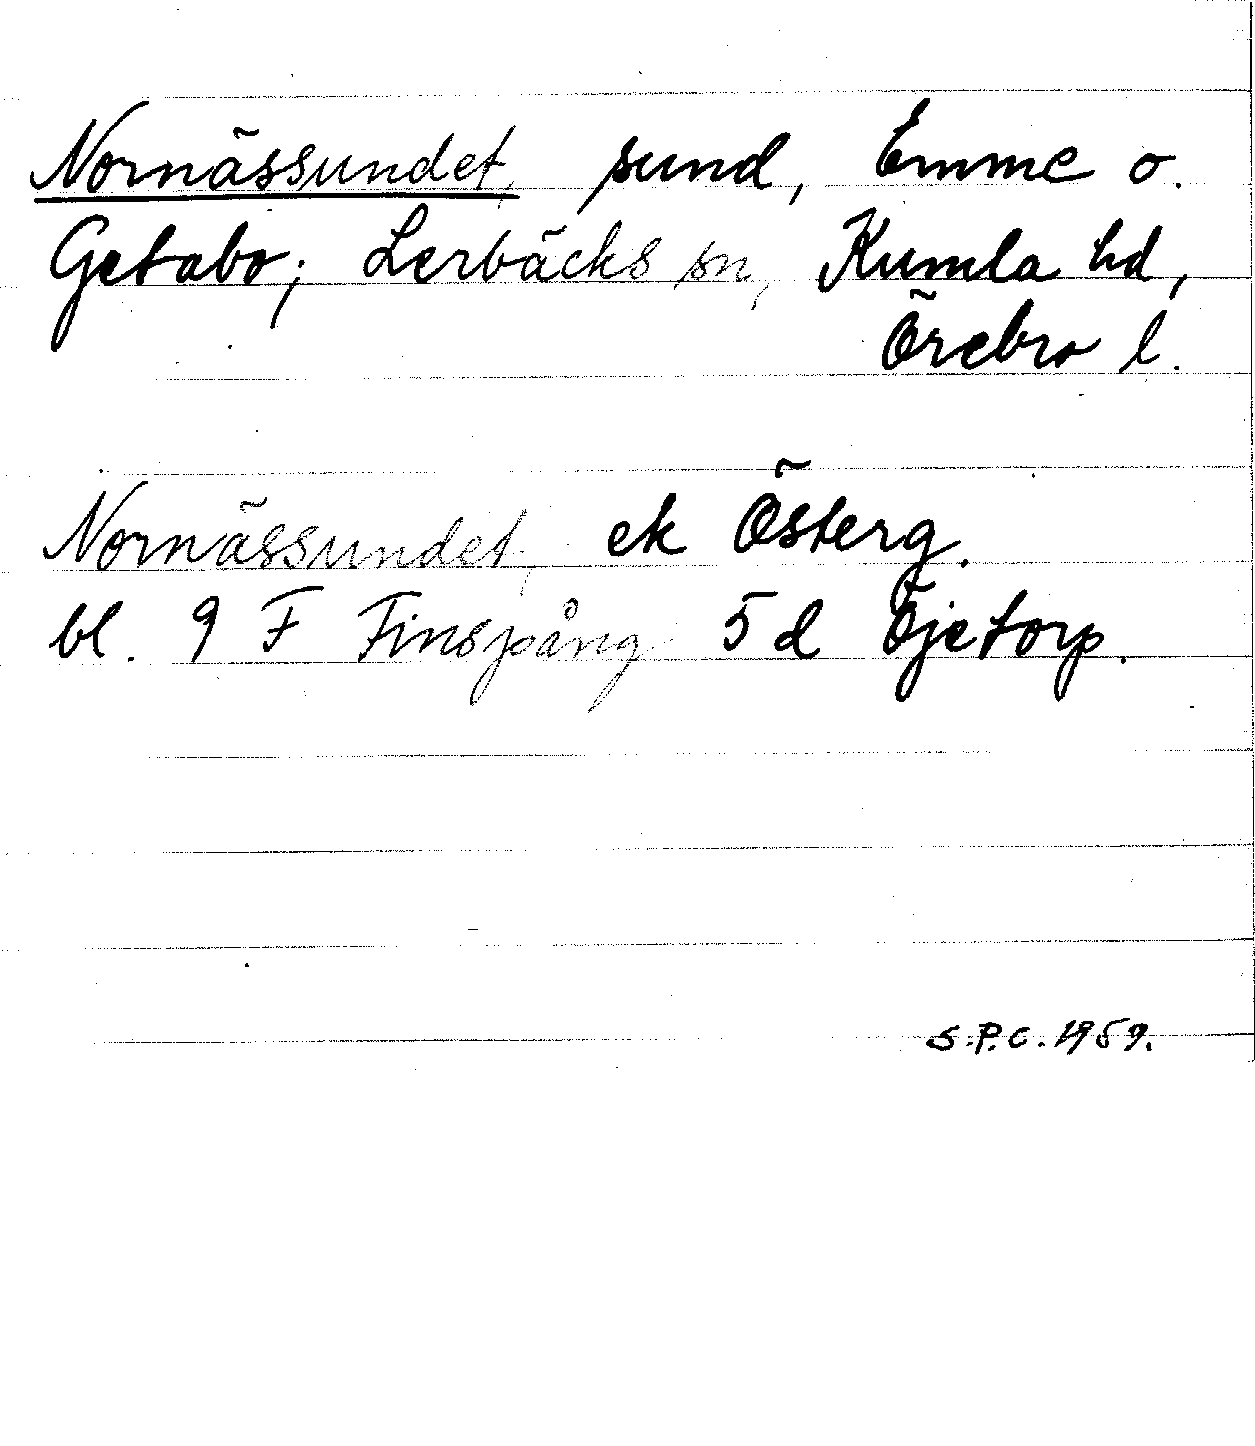 Nornässundet, sund, Emme o.
Getabo; Lerbäcks sn, Kumla hd,
Örebro l.
Nornässundet, ek Österg.
bl. 9 F Finspång 5 d Öjetorp.
S.P.C. 1959.